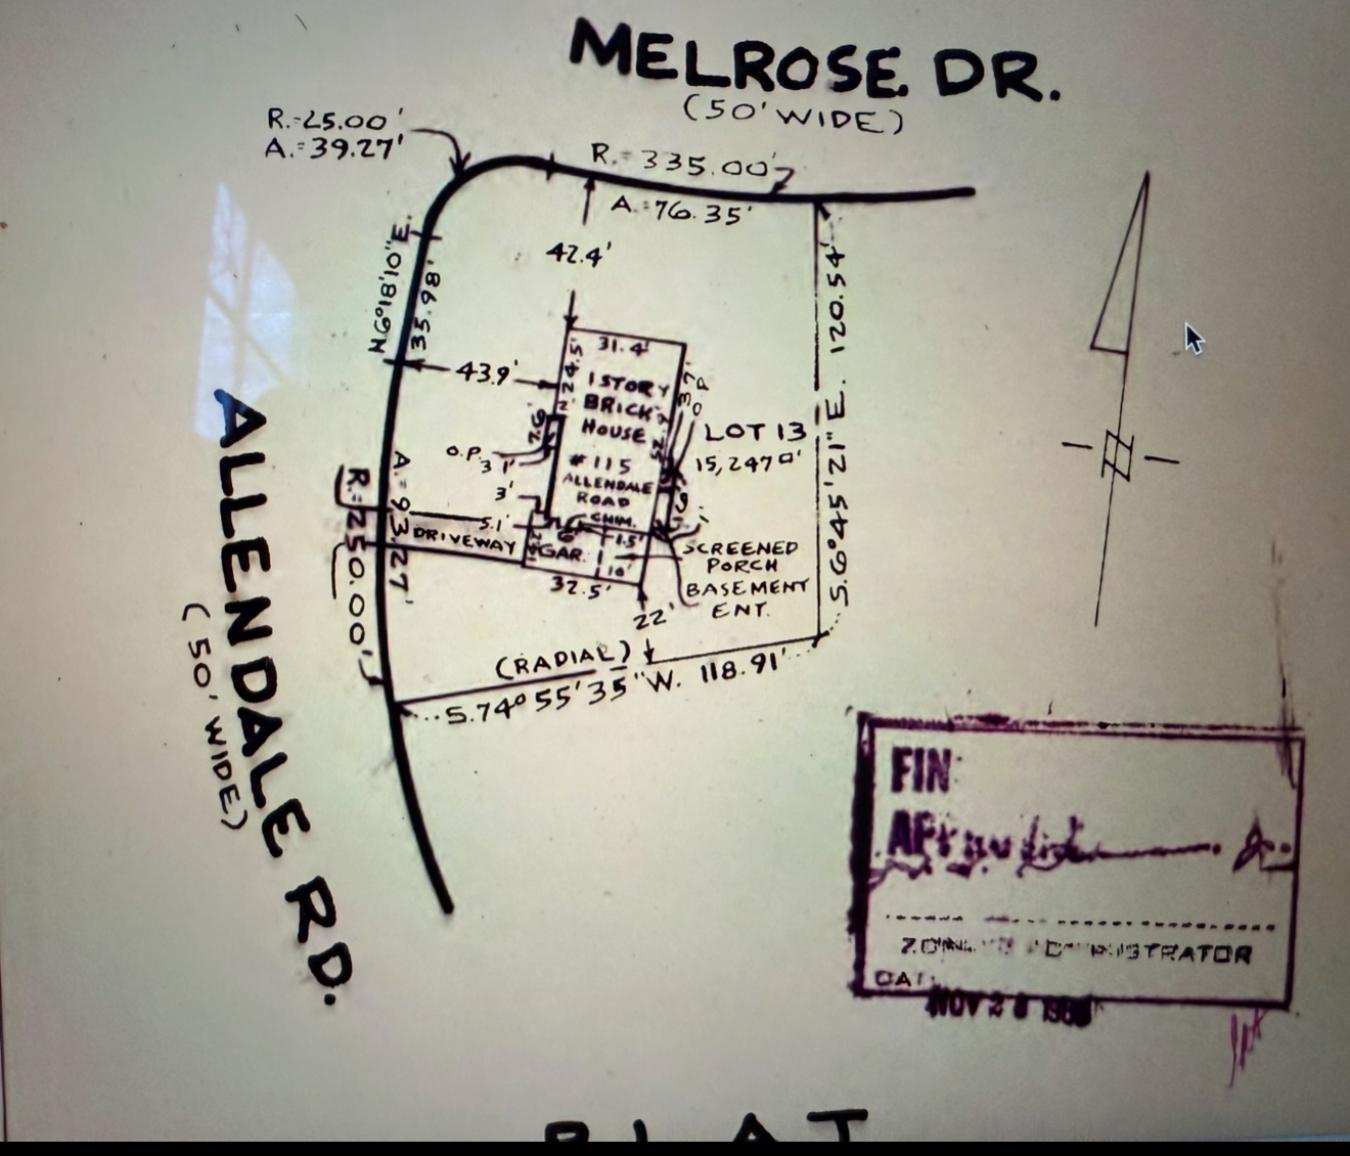 MELROSE DR.
(50' WIDE)
R.=25.00'
A.=39.27'
R.=335.00'
A.=76.35'
N.6°18'10"E.
35.98'
42.4'
43.9'
31.4'
24.5'
1 STORY
BRICK
HOUSE
#115
ALLENDALE
ROAD
CHIM.
O.P.
3'
1'
3'
5.1'
DRIVEWAY
GAR.
15'
10'
32.5'
22'
LOT 13
15,247□'
SCREENED
PORCH
BASEMENT
ENT.
S.6°45'21"E. 120.54'
A.=93.27'
R.=250.00'
(RADIAL)
S.74°55'35"W. 118.91'
ALLENDALE RD.
(50' WIDE)
FIN
ADMINISTRATOR
NOV 2
PLAT